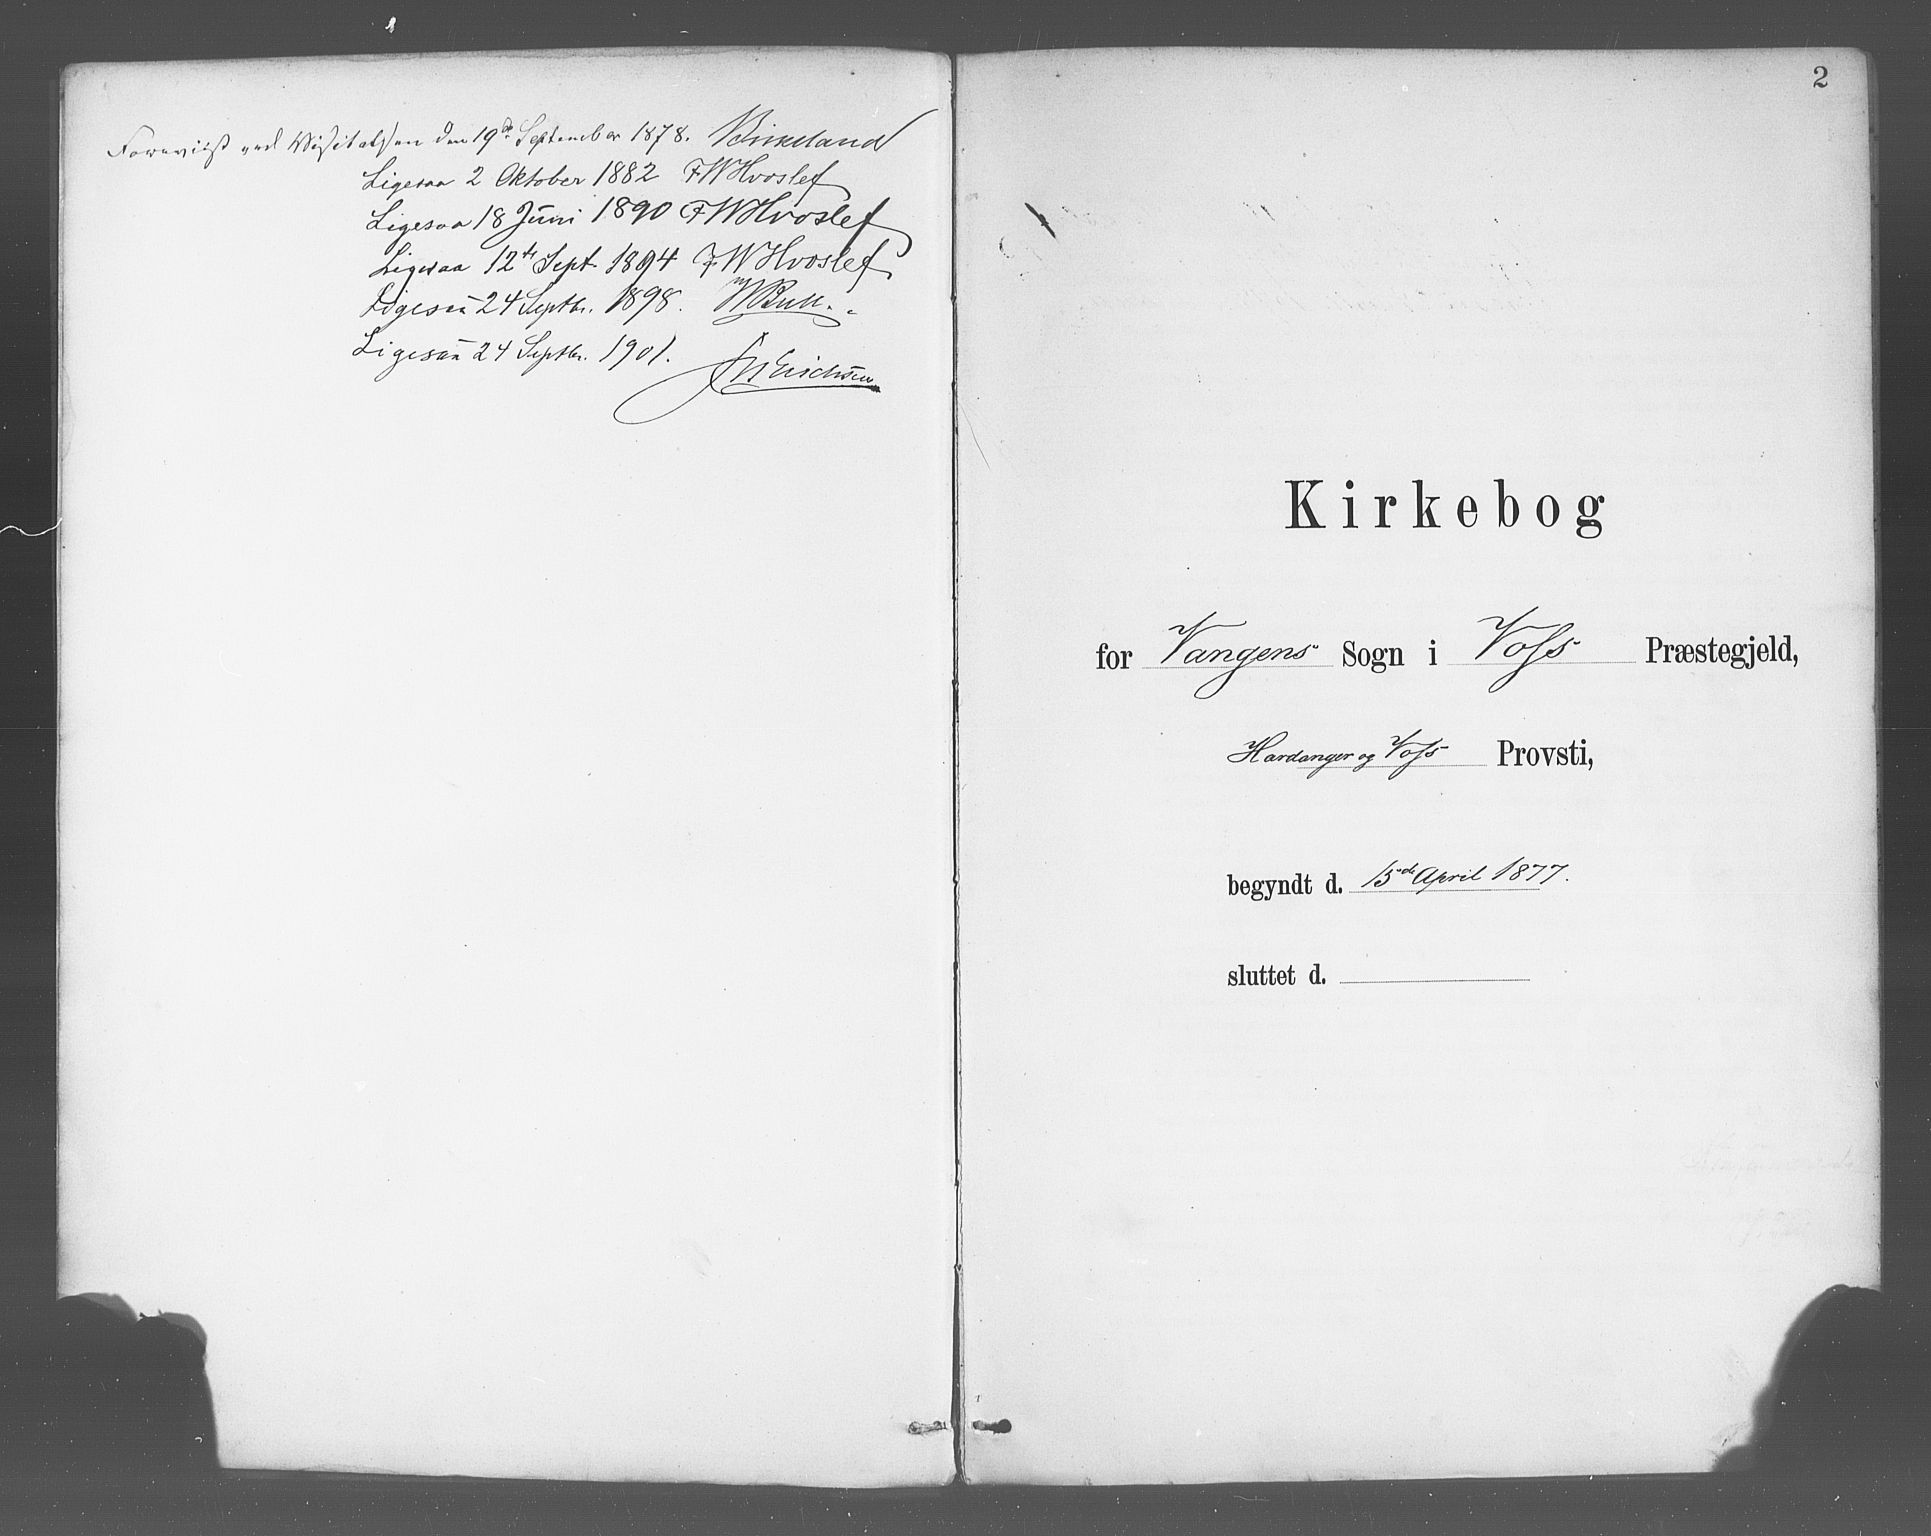 Foreviist ved Visitatsen den 19de September 1878. Birkeland
Ligesaa 2 Oktober 1882 FWHvoslef
Ligesaa 18 Juni 1890 FWHvoslef
Ligesaa 12te Sept. 1894 FWHvoslef
Ligesaa 24 Septbr. 1898. WBull.
Ligesaa 24 Septbr. 1901. Erichsen
2
Kirkebog
for Vangens Sogn i Voss Præstegjeld,
Hardanger og Voss Provsti,
begyndt d. 15de April 1877.
sluttet d.